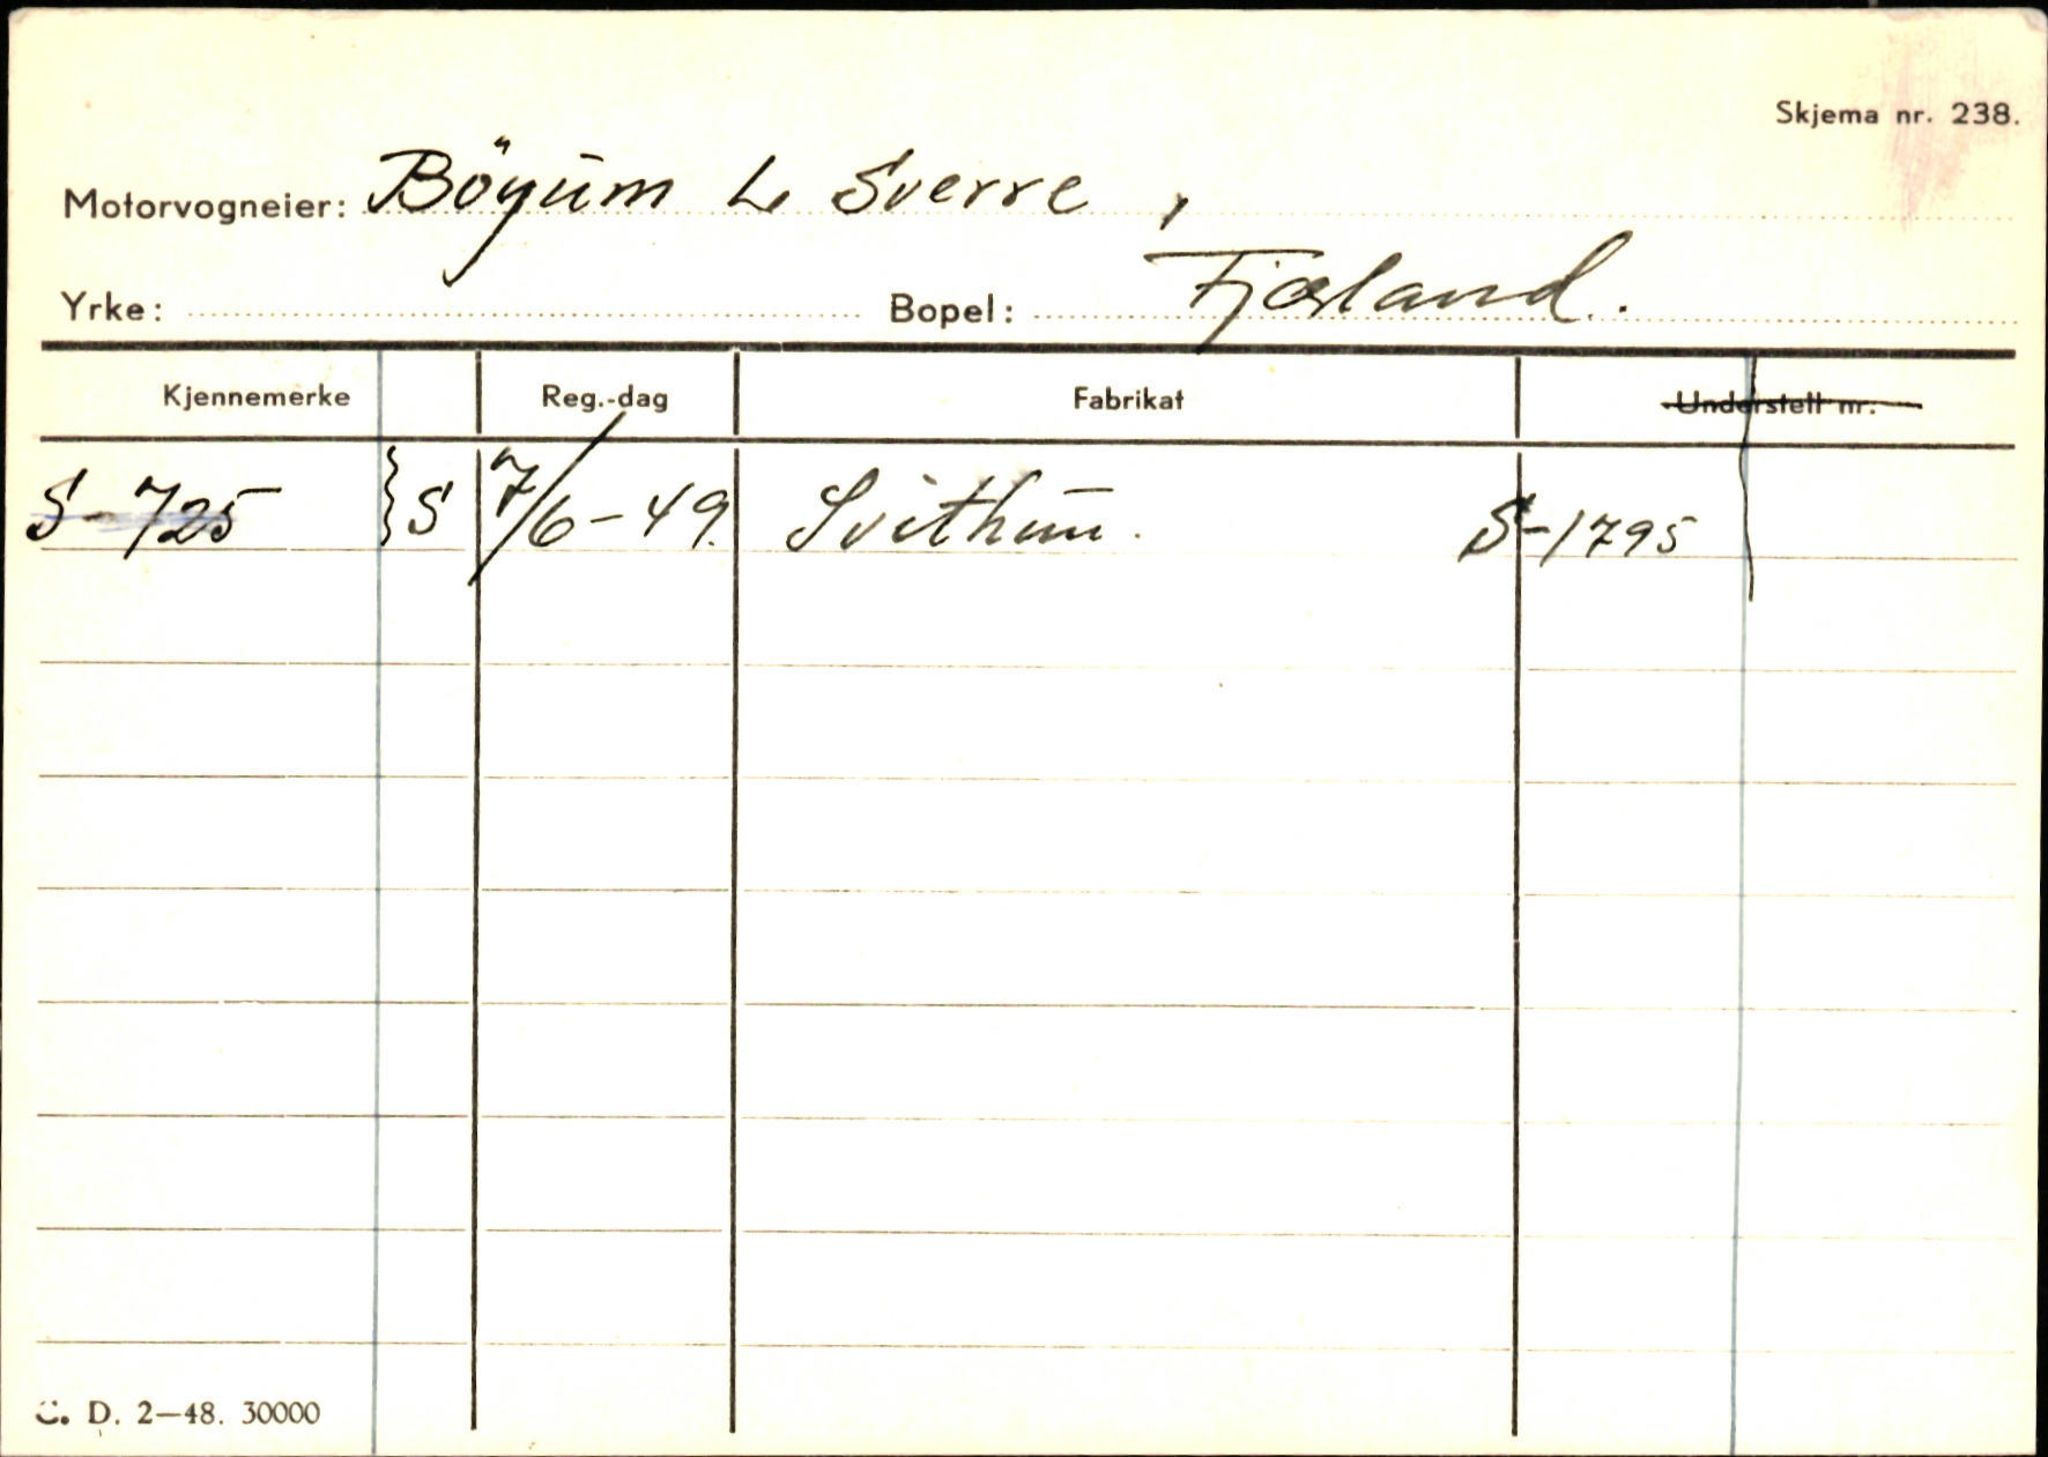 Skjema nr. 238.
Motorvogneier: Böyum L. Sverre,
Yrke: Bopel: Fjærland.
Kjennemerke Reg.-dag Fabrikat Understell nr.
S-725 } S 7/6-49. Svithun. S-1795
C. D. 2—48. 30000